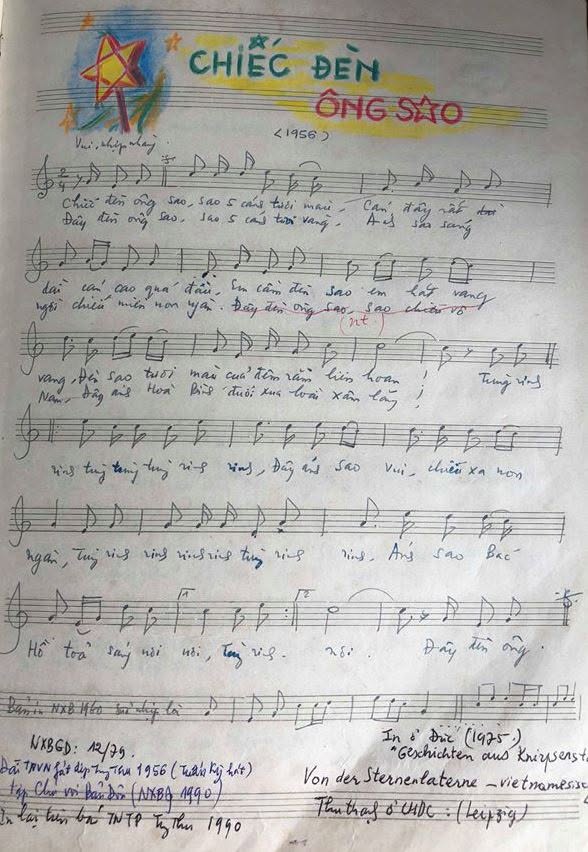 CHIẾC ĐÈN
ÔNG SAO
(1956)
Vui, nhịp nhàng.
2/4
Chiếc đèn ông sao, sao 5 cánh tươi màu, Cán đây rất
Đây đèn ông sao, sao 5 cánh tươi vàng, Ánh sao sáng
dài cán cao quá đầu, Em cầm đèn sao em hát vang
ngời chiếu miền non ngàn. Đây đèn ông sao, sao chiếu vô
(nt)
vang, Đèn sao tươi màu của đêm rằm liên hoan! Tùng rinh
Nam, Đây ánh Hoà Bình đuổi xua loài xâm lăng!
rinh tùng tùng tùng rinh rinh, Đây ánh sao vui, chiếu xa non
ngàn, Tùng rinh rinh rinh rinh tùng rinh rinh, Ánh sao Bác
1 2
Hồ toả sáng nơi nơi, Tùng rinh. nơi. Đây đèn ông.
Bản in NXB 1960
NXBGD: 12/79.
In ở Đức (1975.)
Đài TNVN 1956
"Geschichten aus Knirpsenst
(NXBG 1990)
Von der Sternenlaterne – vietnamesisc
In lại trên báo TNTP 1990
Thu thanh ở CHDC: (Leipzig)